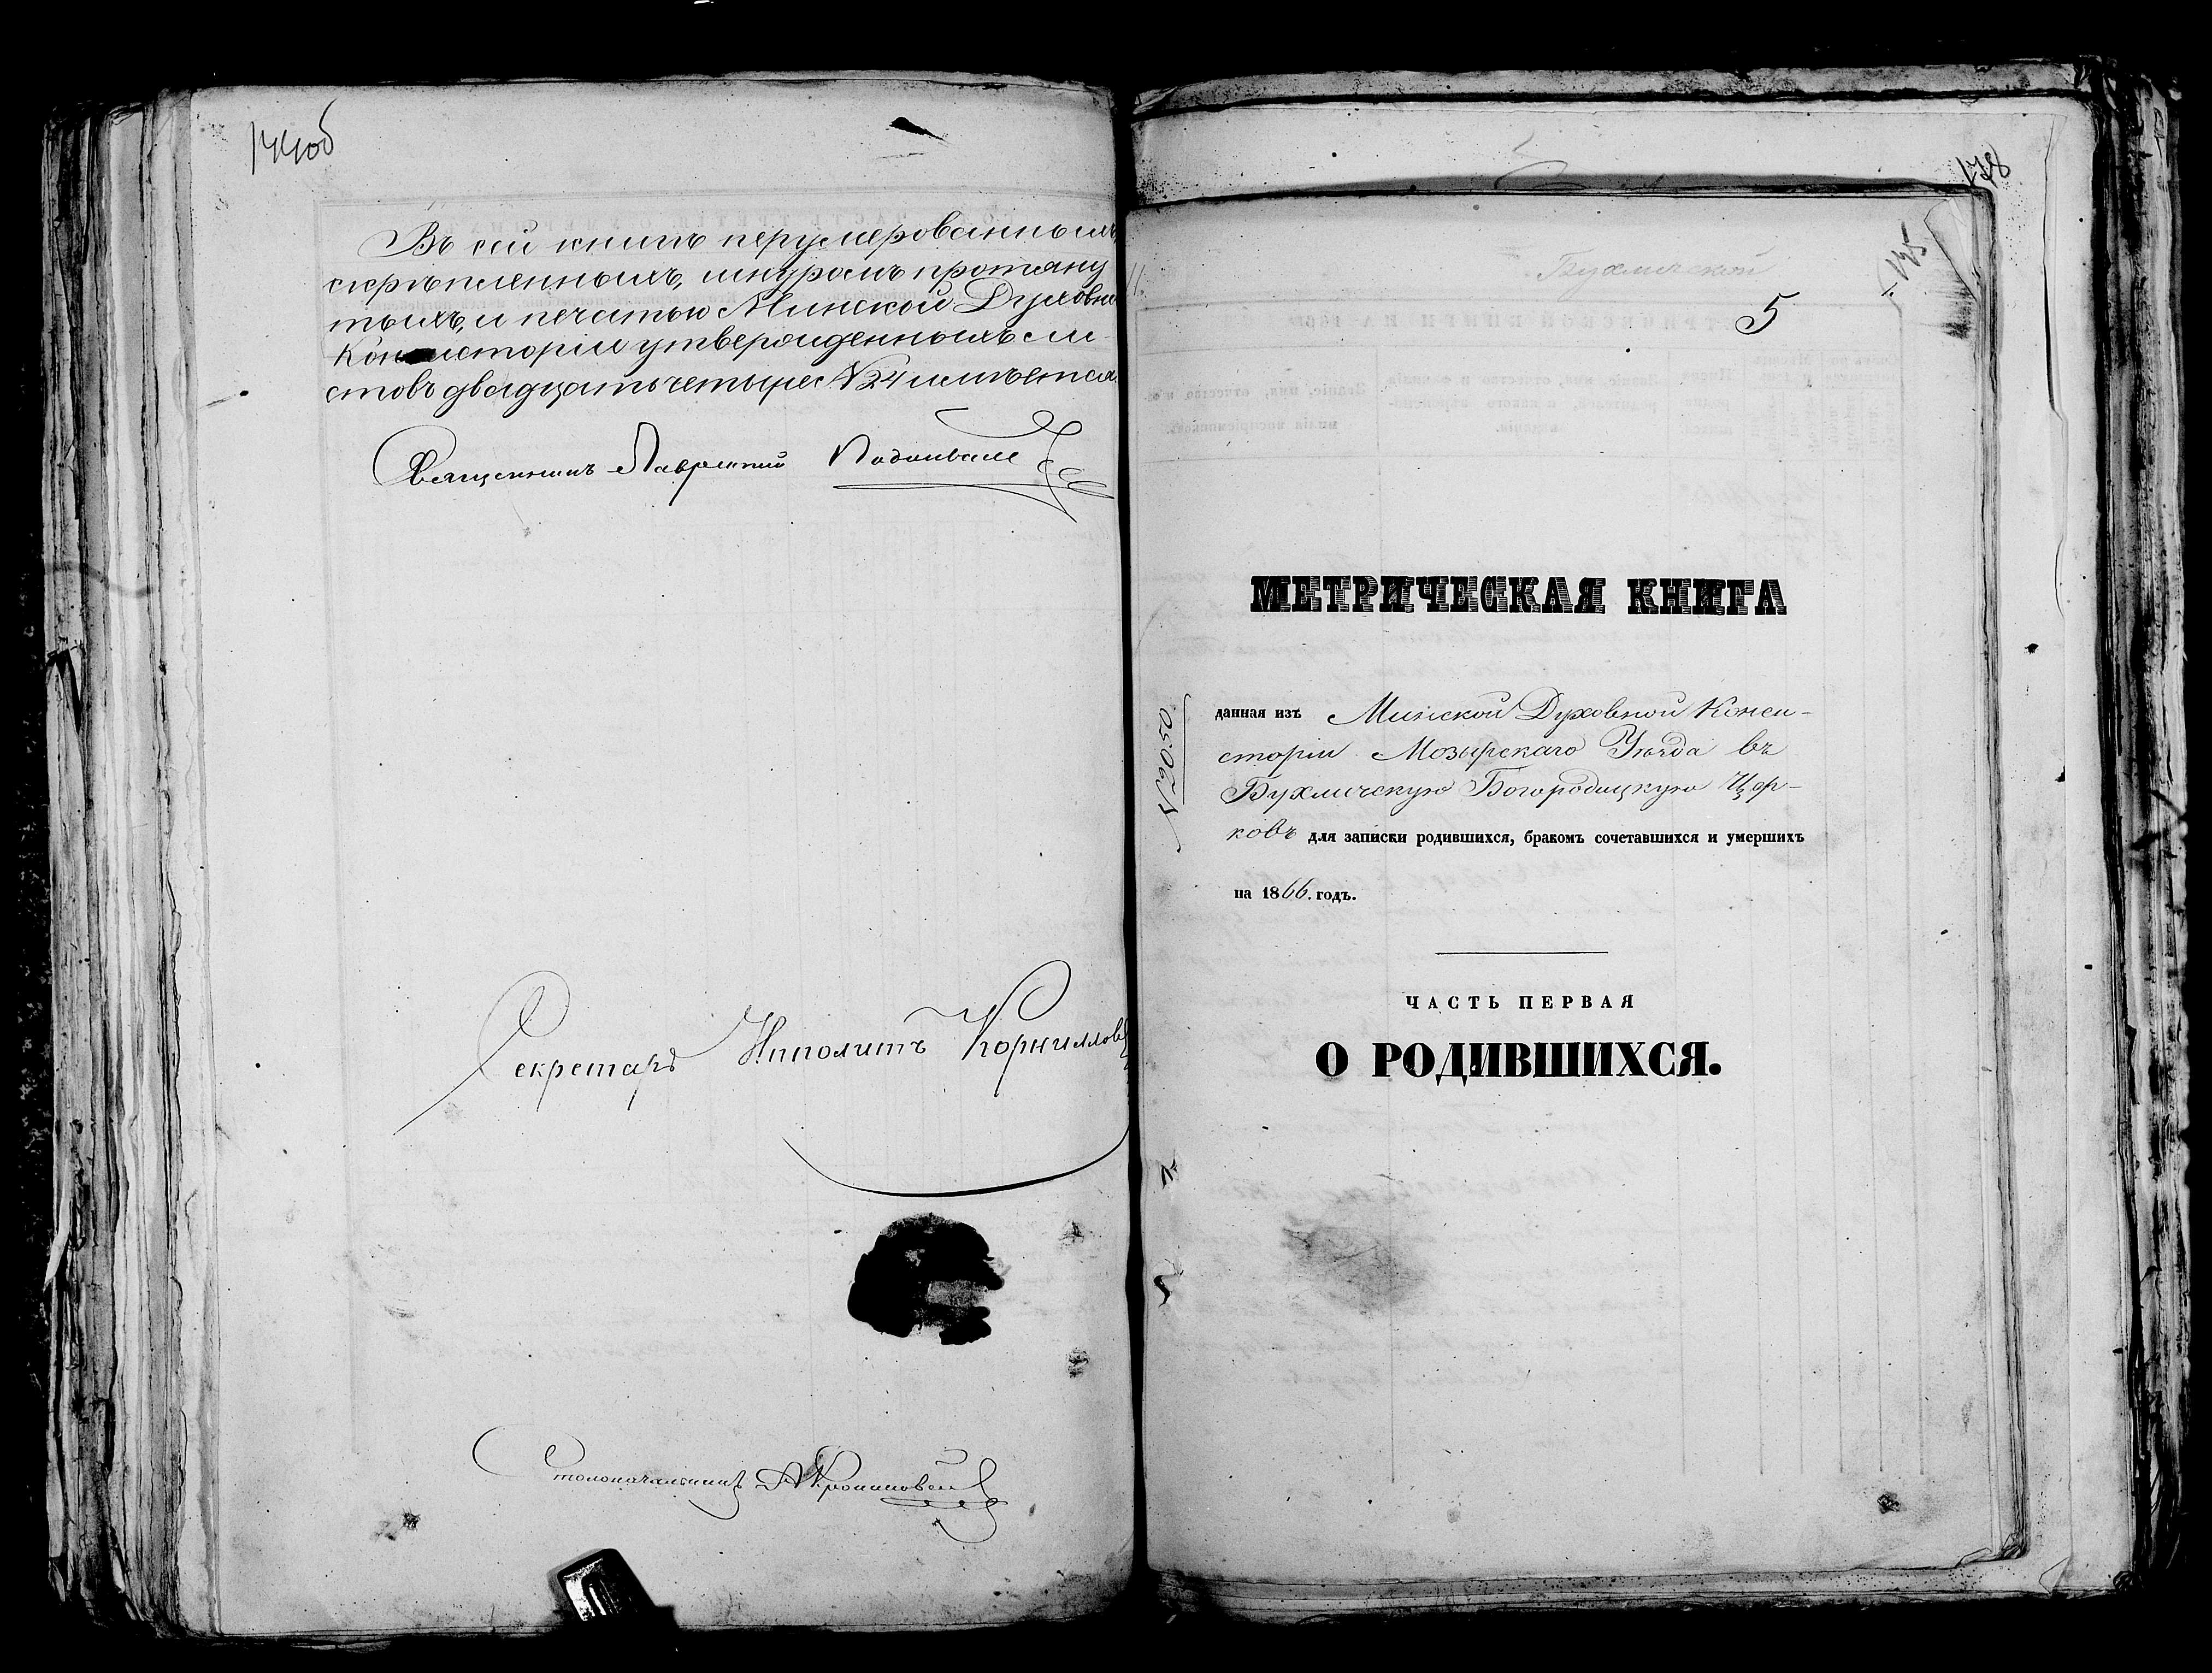 144об
Въ сей книгѣ перумерованныхъ,
скрѣпленныхъ, шнуромъ протяну
тыхъ, и печатью Минской Духовно
Консисторіи утвержденныхъ ли-
стовъ двадцать четыре №24 имѣется.
Священникъ Лаврентій
Секретарь Ипполитъ Корнилов
Столоначальникъ
178
145
Бухличской
5
МЕТРИЧЕСКАЯ КНИГА
№2050
данная изъ Минской Духовной Конси-
сторіи Мозырскаго Уѣзда въ
Бухличскую Богородицкую Цер-
ковь для записки родившихся, бракомъ сочетавшихся и умершихъ
на 1866. годъ.
ЧАСТЬ ПЕРВАЯ
О РОДИВШИХСЯ.